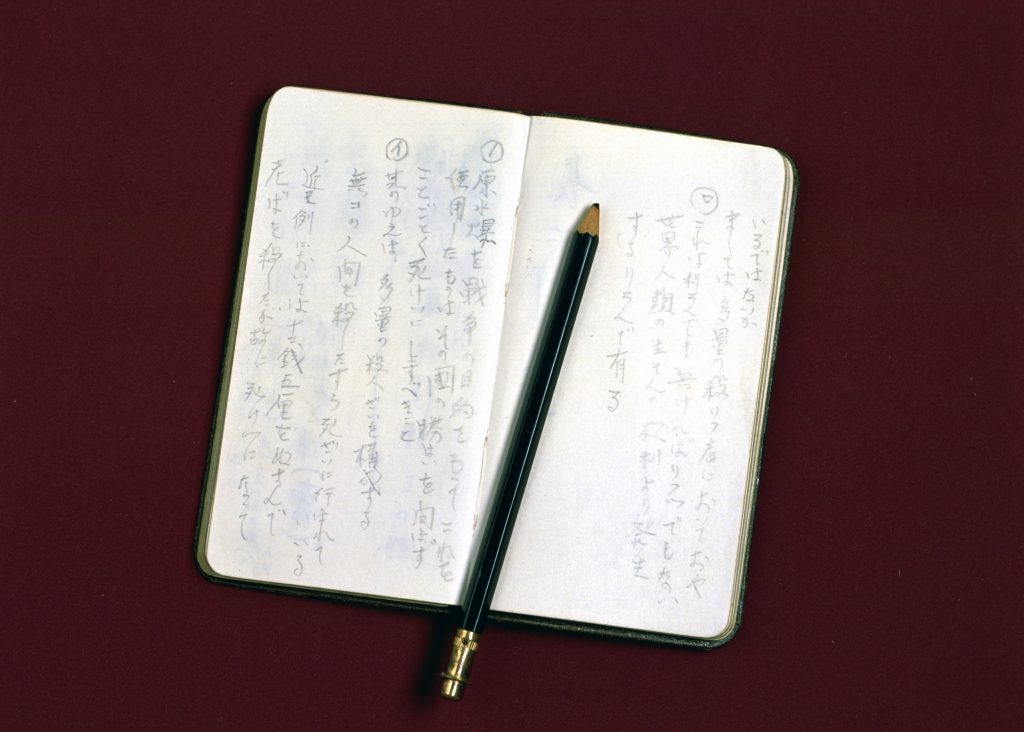 ① 原水爆を戦争の目的をもってこれを
使用したものはその国の勝はいを問はず
ことごとく死けいにすべきこと
㋑ 其のゆえは、多量の殺人ざいを構成する
無コの人間を殺したすら死ざいに行はれて
いる
近き例においては十六銭五厘をぬすんで
老ばを殺した故に死けいになって
いるではないか
ましては多量の殺りく者においておや
㋺ これは科学でも無ければりくつでもない
世界人類の生そんの权利より発生
するりろんで有る